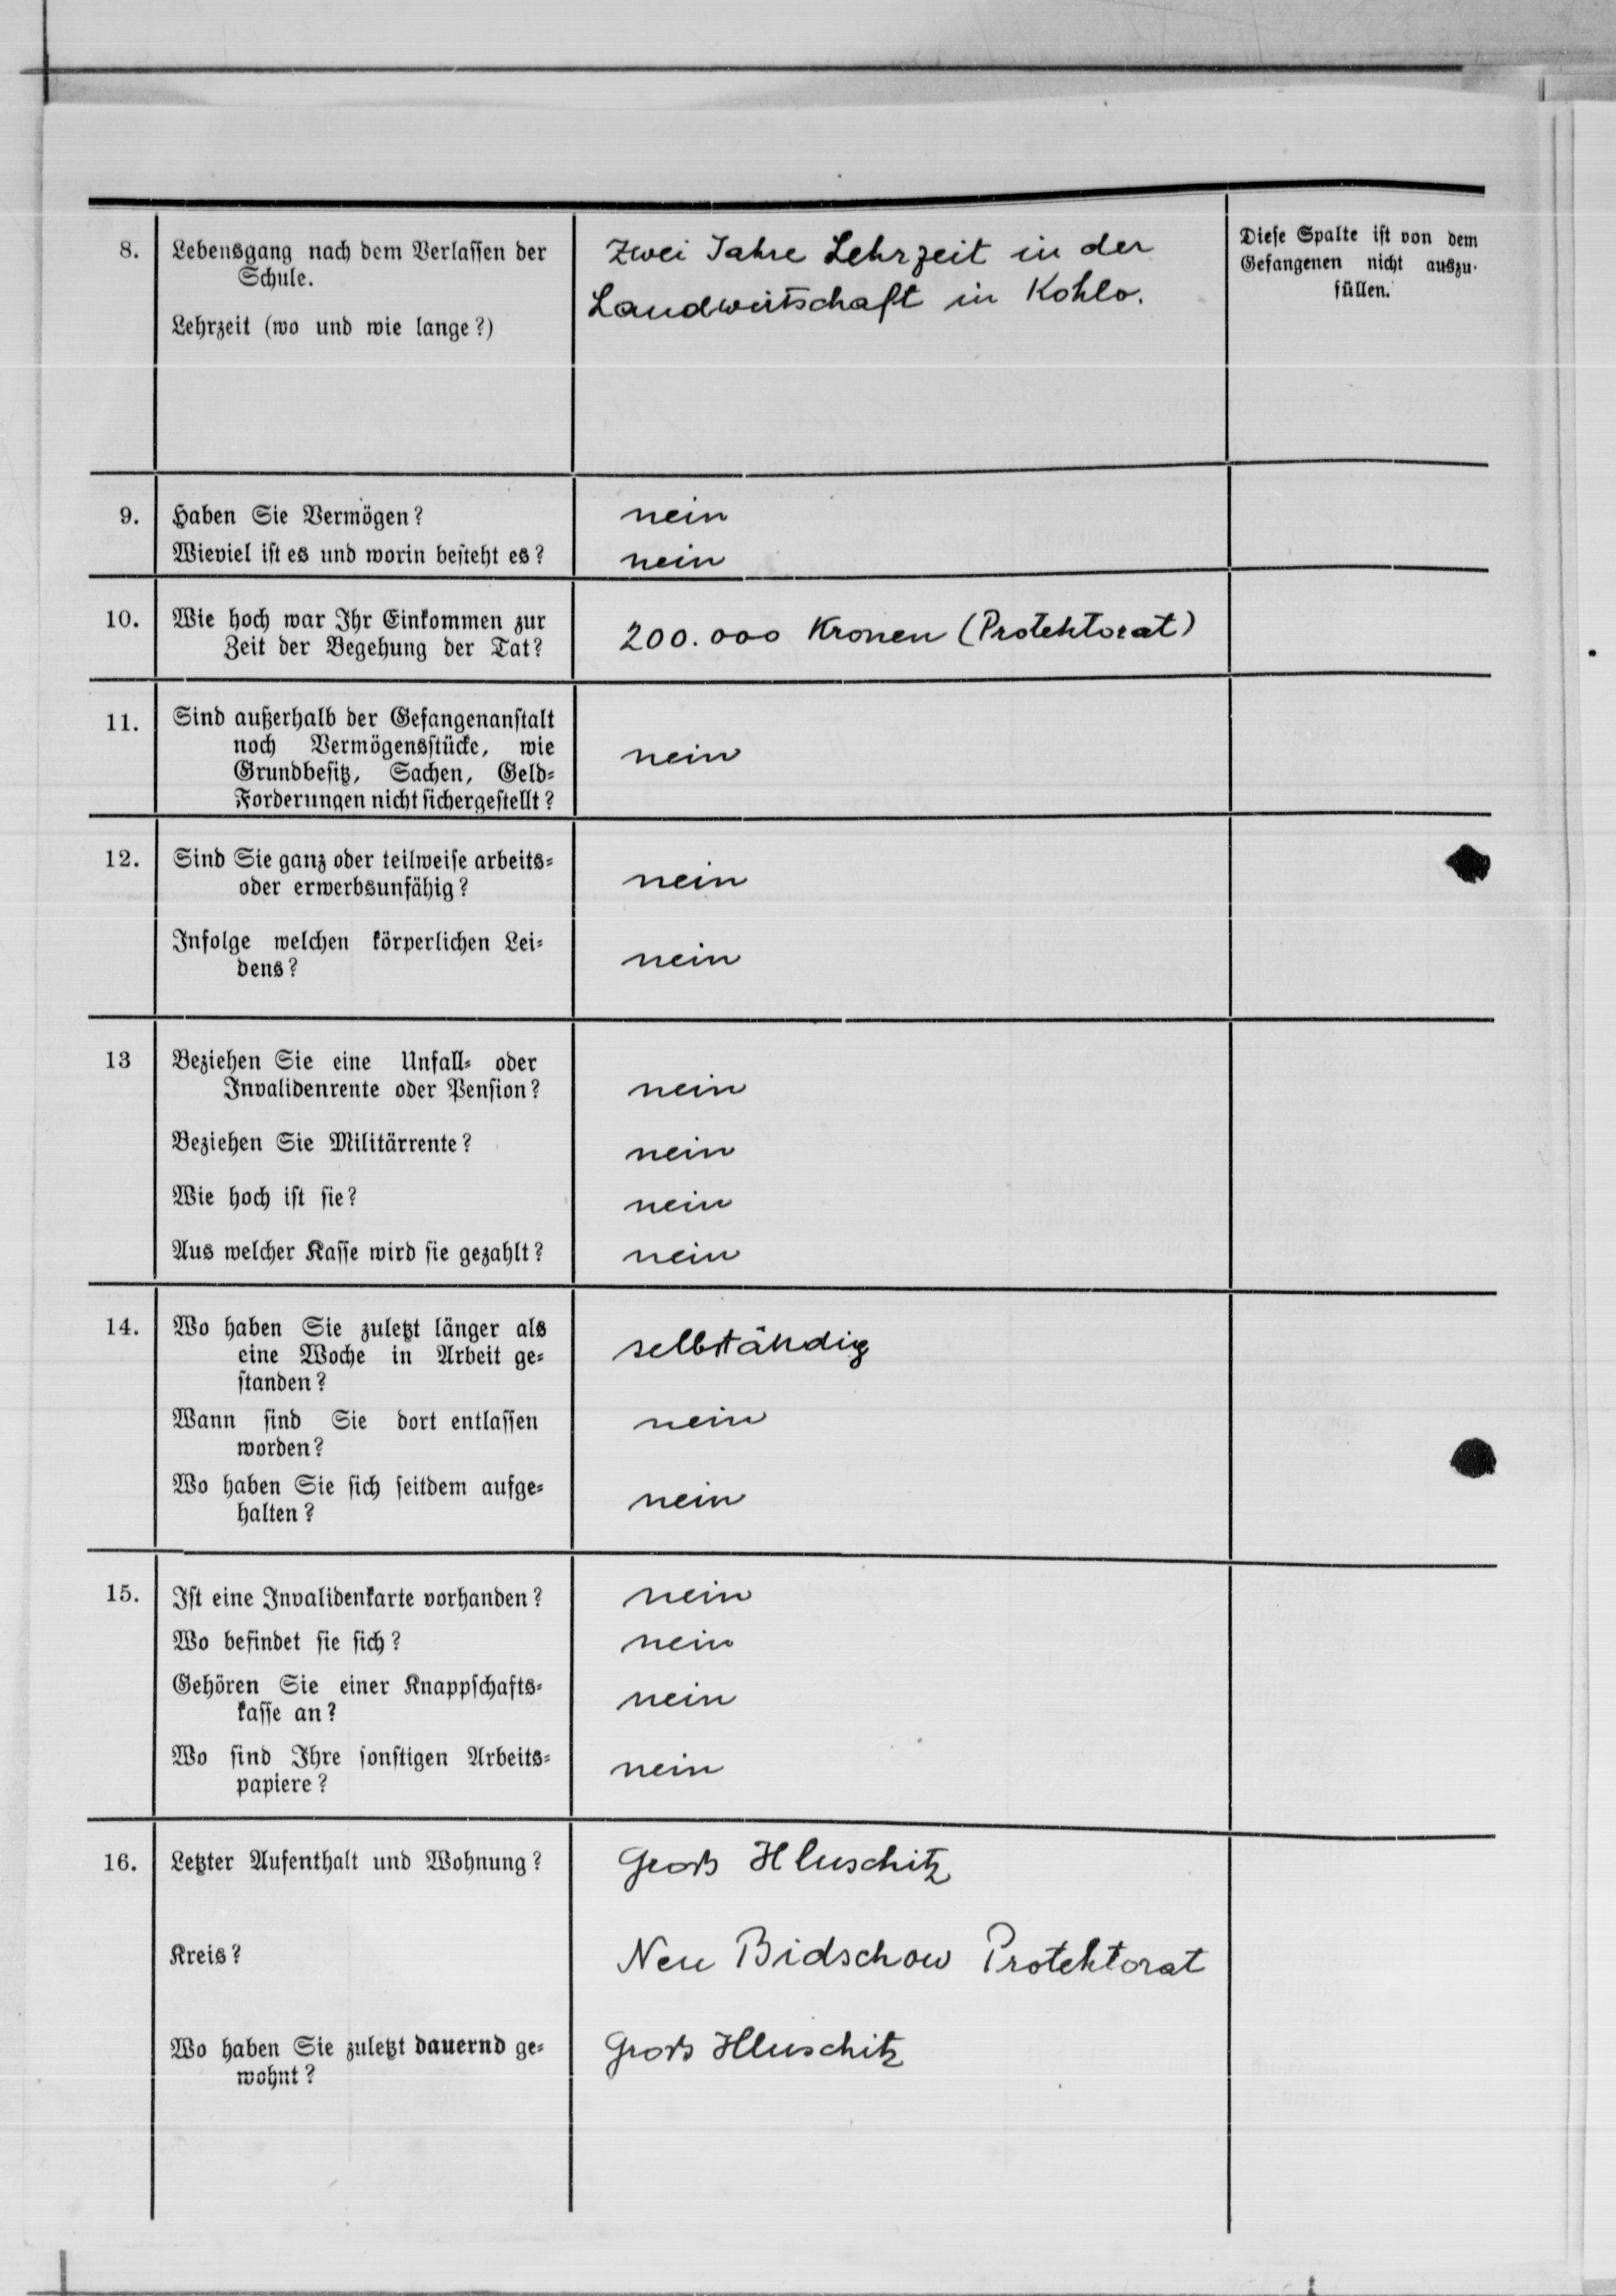 8. Lebensgang nach dem Verlassen der
Schule.
Lehrzeit (wo und wie lange?)
Zwei Jahre Lehrzeit in der
Landwirtschaft in Kohlo.
Diese Spalte ist von dem
Gefangenen nicht auszu-
füllen.
9. Haben Sie Vermögen? nein
Wieviel ist es und worin besteht es? nein
10. Wie hoch war Ihr Einkommen zur
Zeit der Begehung der Tat?
200.000 Kronen (Protektorat)
11. Sind außerhalb der Gefangenanstalt
noch Vermögensstücke, wie
Grundbesitz, Sachen, Geld-
Forderungen nicht sichergestellt?
nein
12. Sind Sie ganz oder teilweise arbeits-
oder erwerbsunfähig?
nein
Infolge welchen körperlichen Lei-
dens?
nein
13 Beziehen Sie eine Unfall- oder
Invalidenrente oder Pension?
nein
Beziehen Sie Militärrente? nein
Wie hoch ist sie? nein
Aus welcher Kasse wird sie gezahlt? nein
14. Wo haben Sie zuletzt länger als
eine Woche in Arbeit ge-
standen?
selbständig
Wann sind Sie dort entlassen
worden?
nein
Wo haben Sie sich seitdem aufge-
halten?
nein
15. Ist eine Invalidenkarte vorhanden? nein
Wo befindet sie sich? nein
Gehören Sie einer Knappschafts-
kasse an?
nein
Wo sind Ihre sonstigen Arbeits-
papiere?
nein
16. Letzter Aufenthalt und Wohnung? Groß Hluschitz
Kreis? Neu Bidschow Protektorat
Wo haben Sie zuletzt dauernd ge-
wohnt?
Groß Hluschitz